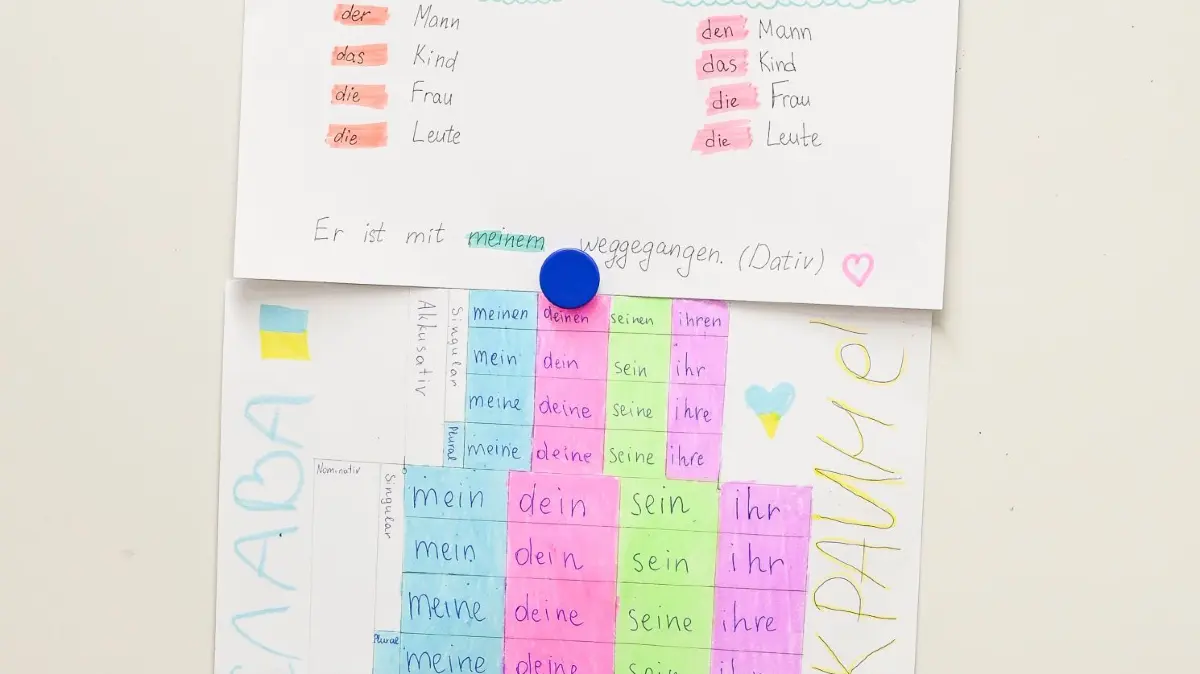 der Mann den Mann
das Kind das Kind
die Frau die Frau
die Leute die Leute
Er ist mit meinem weggegangen. (Dativ)
Akkusativ Singular meinen deinen seinen ihren
mein dein sein ihr
meine deine seine ihre
Plural meine deine seine ihre
Nominativ Singular mein dein sein ihr
mein dein sein ihr
meine deine seine ihre
Plural meine deine
ЛАВА
КРАИНЕ